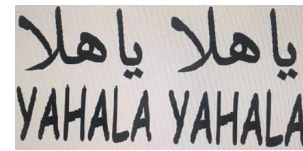 يا هلا يا هلا
YAHALA YAHALA